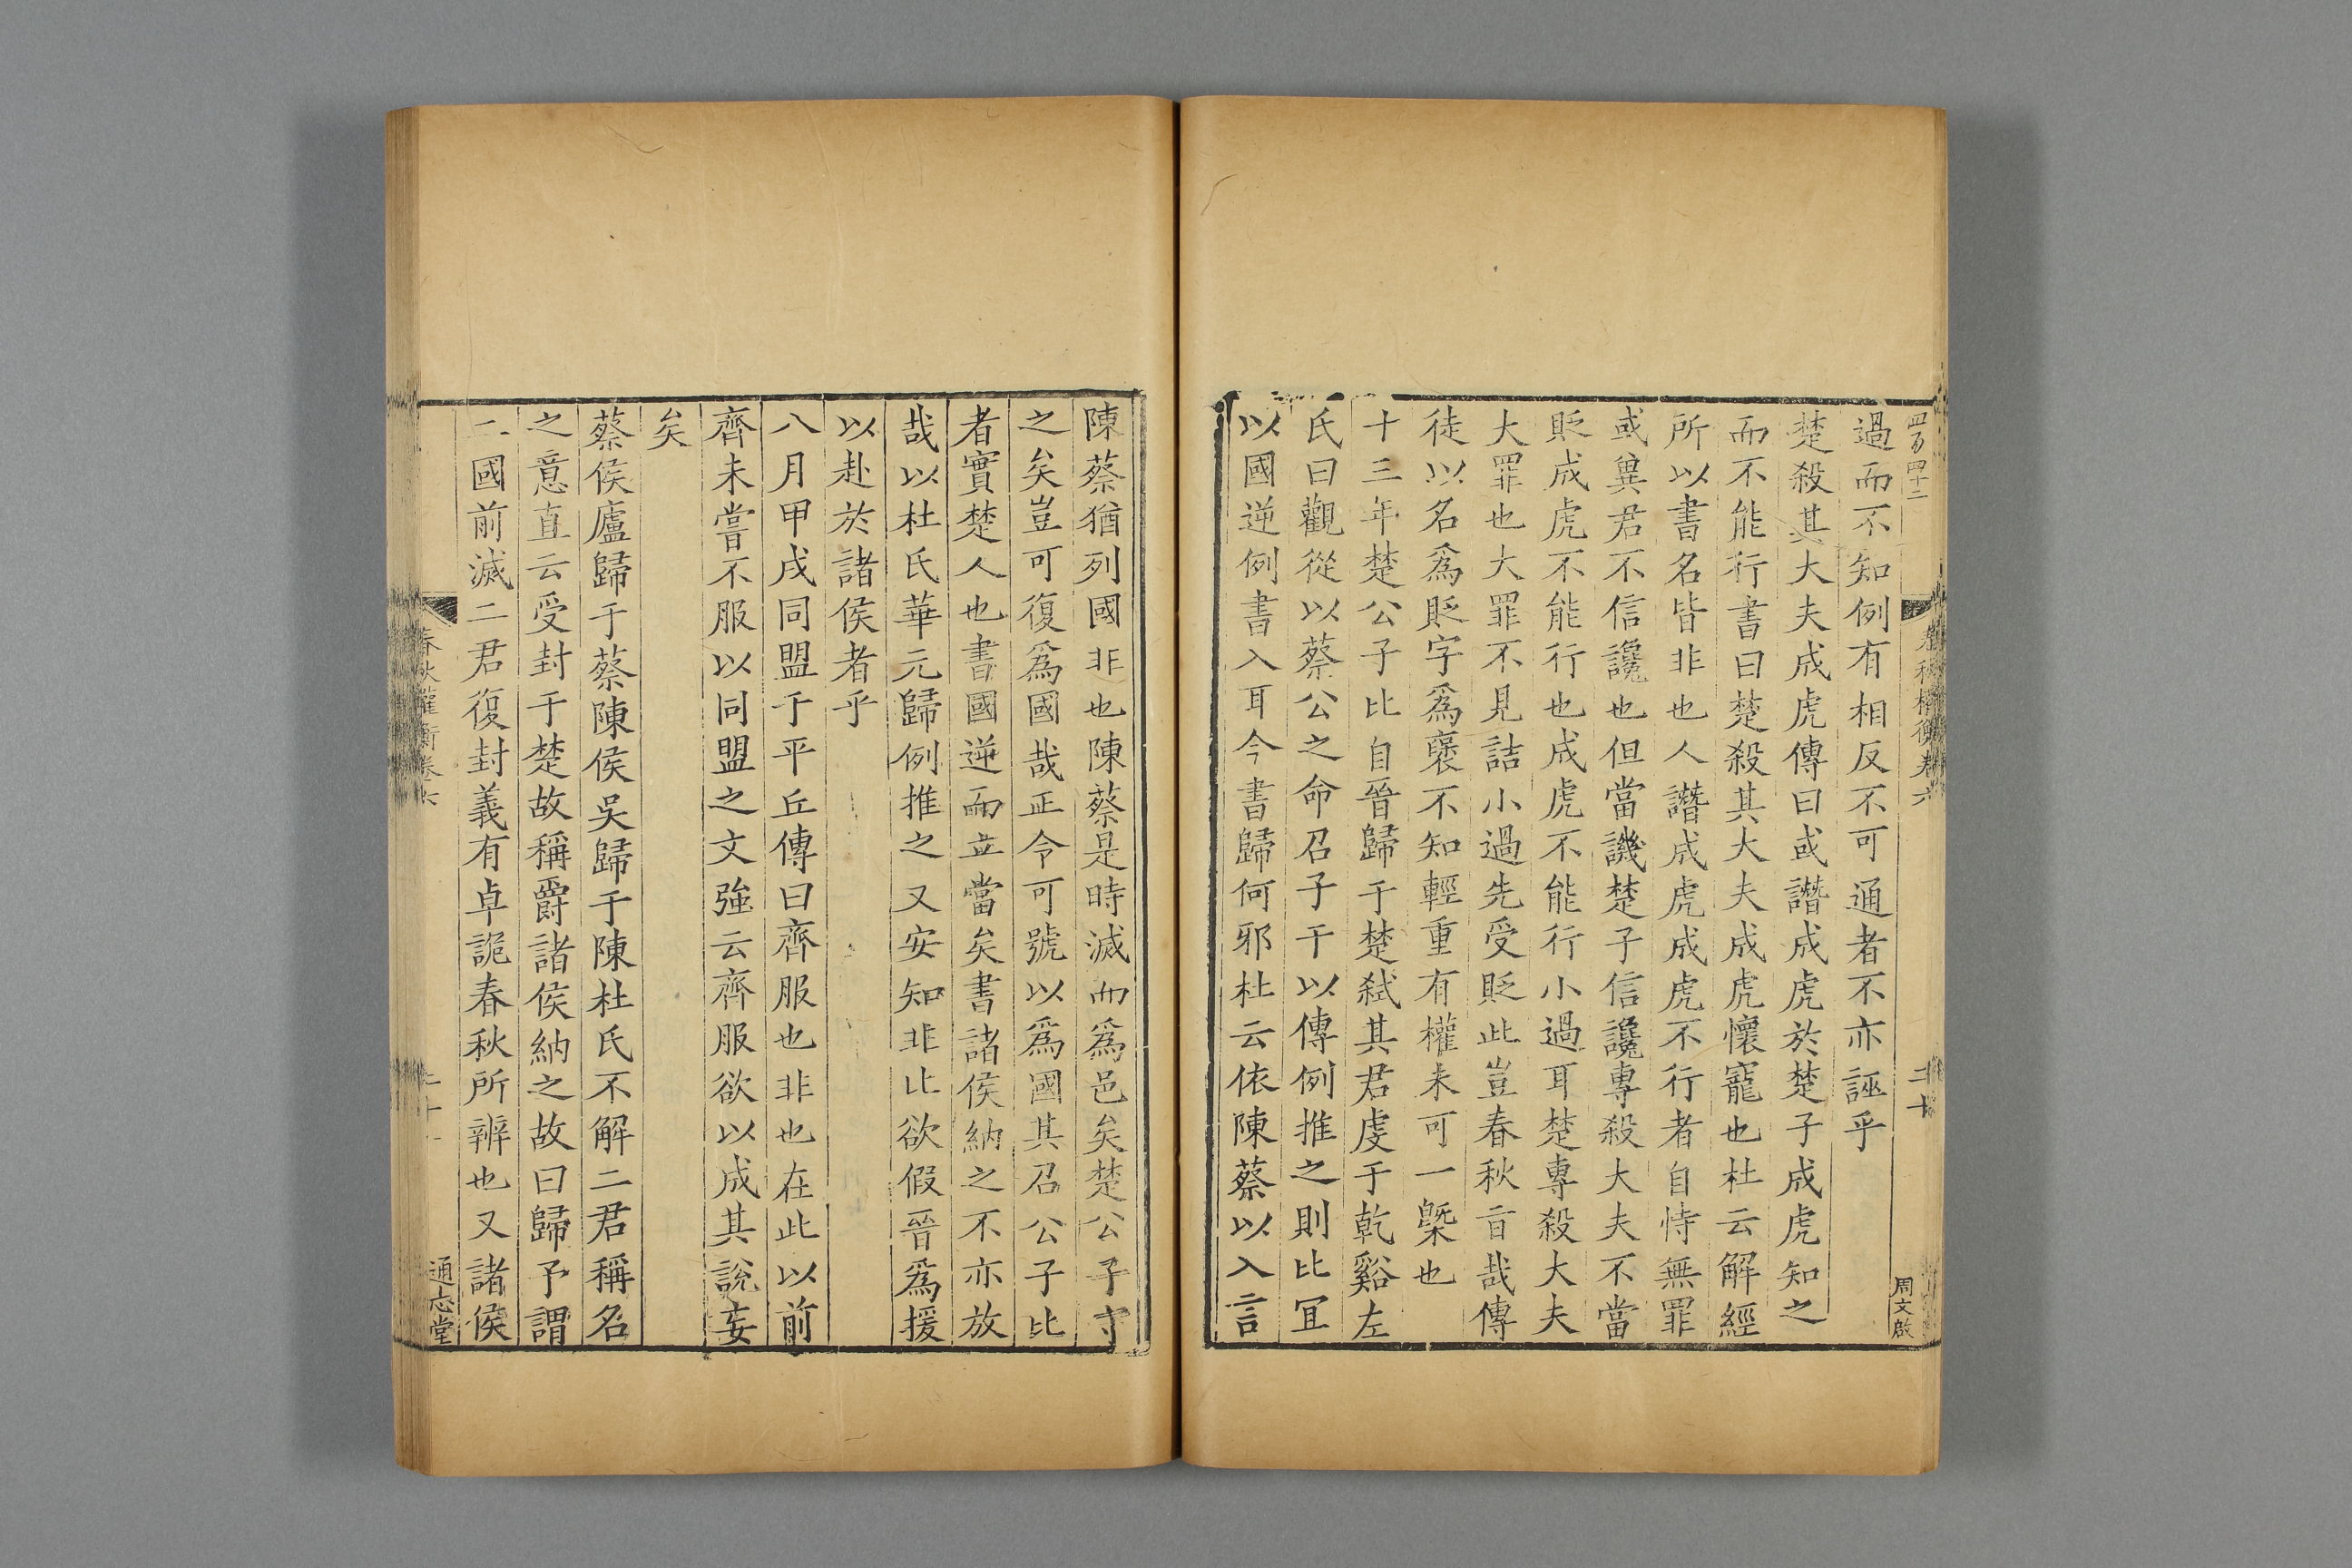 四百四十二
春秋權衡卷六
二十
周文啟
過而不知例有相反不可通者不亦誣乎
楚殺其大夫成虎傳曰或譖成虎於楚子成虎知之
而不能行書曰楚殺其大夫成虎懷寵也杜云解經
所以書名皆非也人譖成虎成虎不行者自恃無罪
或兾君不信讒也但當譏楚子信讒專殺大夫不當
貶成虎不能行也成虎不能行小過耳楚專殺大夫
大罪也大罪不見詰小過先受貶此豈春秋㫖哉傳
徒以名爲貶字爲襃不知輕重有權未可一槩也
十三年楚公子比自晉歸于楚弑其君虔于乾谿左
氏曰觀從以蔡公之命召子干以傳例推之則比宜
以國逆例書入耳今書歸何邪杜云依陳蔡以入言
陳蔡猶列國非也陳蔡是時滅而爲邑矣楚公子守
之矣豈可復爲國哉正令可號以爲國其召公子比
者實楚人也書國逆而立當矣書諸侯納之不亦放
哉以杜氏華元歸例推之又安知非比欲假晉爲援
以赴於諸侯者乎
八月甲戌同盟于平丘傳曰齊服也非也在此以前
齊未嘗不服以同盟之文強云齊服欲以成其說妄
矣
蔡侯廬歸于蔡陳侯吳歸于陳杜氏不解二君稱名
之意直云受封于楚故稱爵諸侯納之故曰歸予謂
二國前滅二君復封義有卓詭春秋所辨也又諸侯
春秋權衡卷六
二十一
通志堂